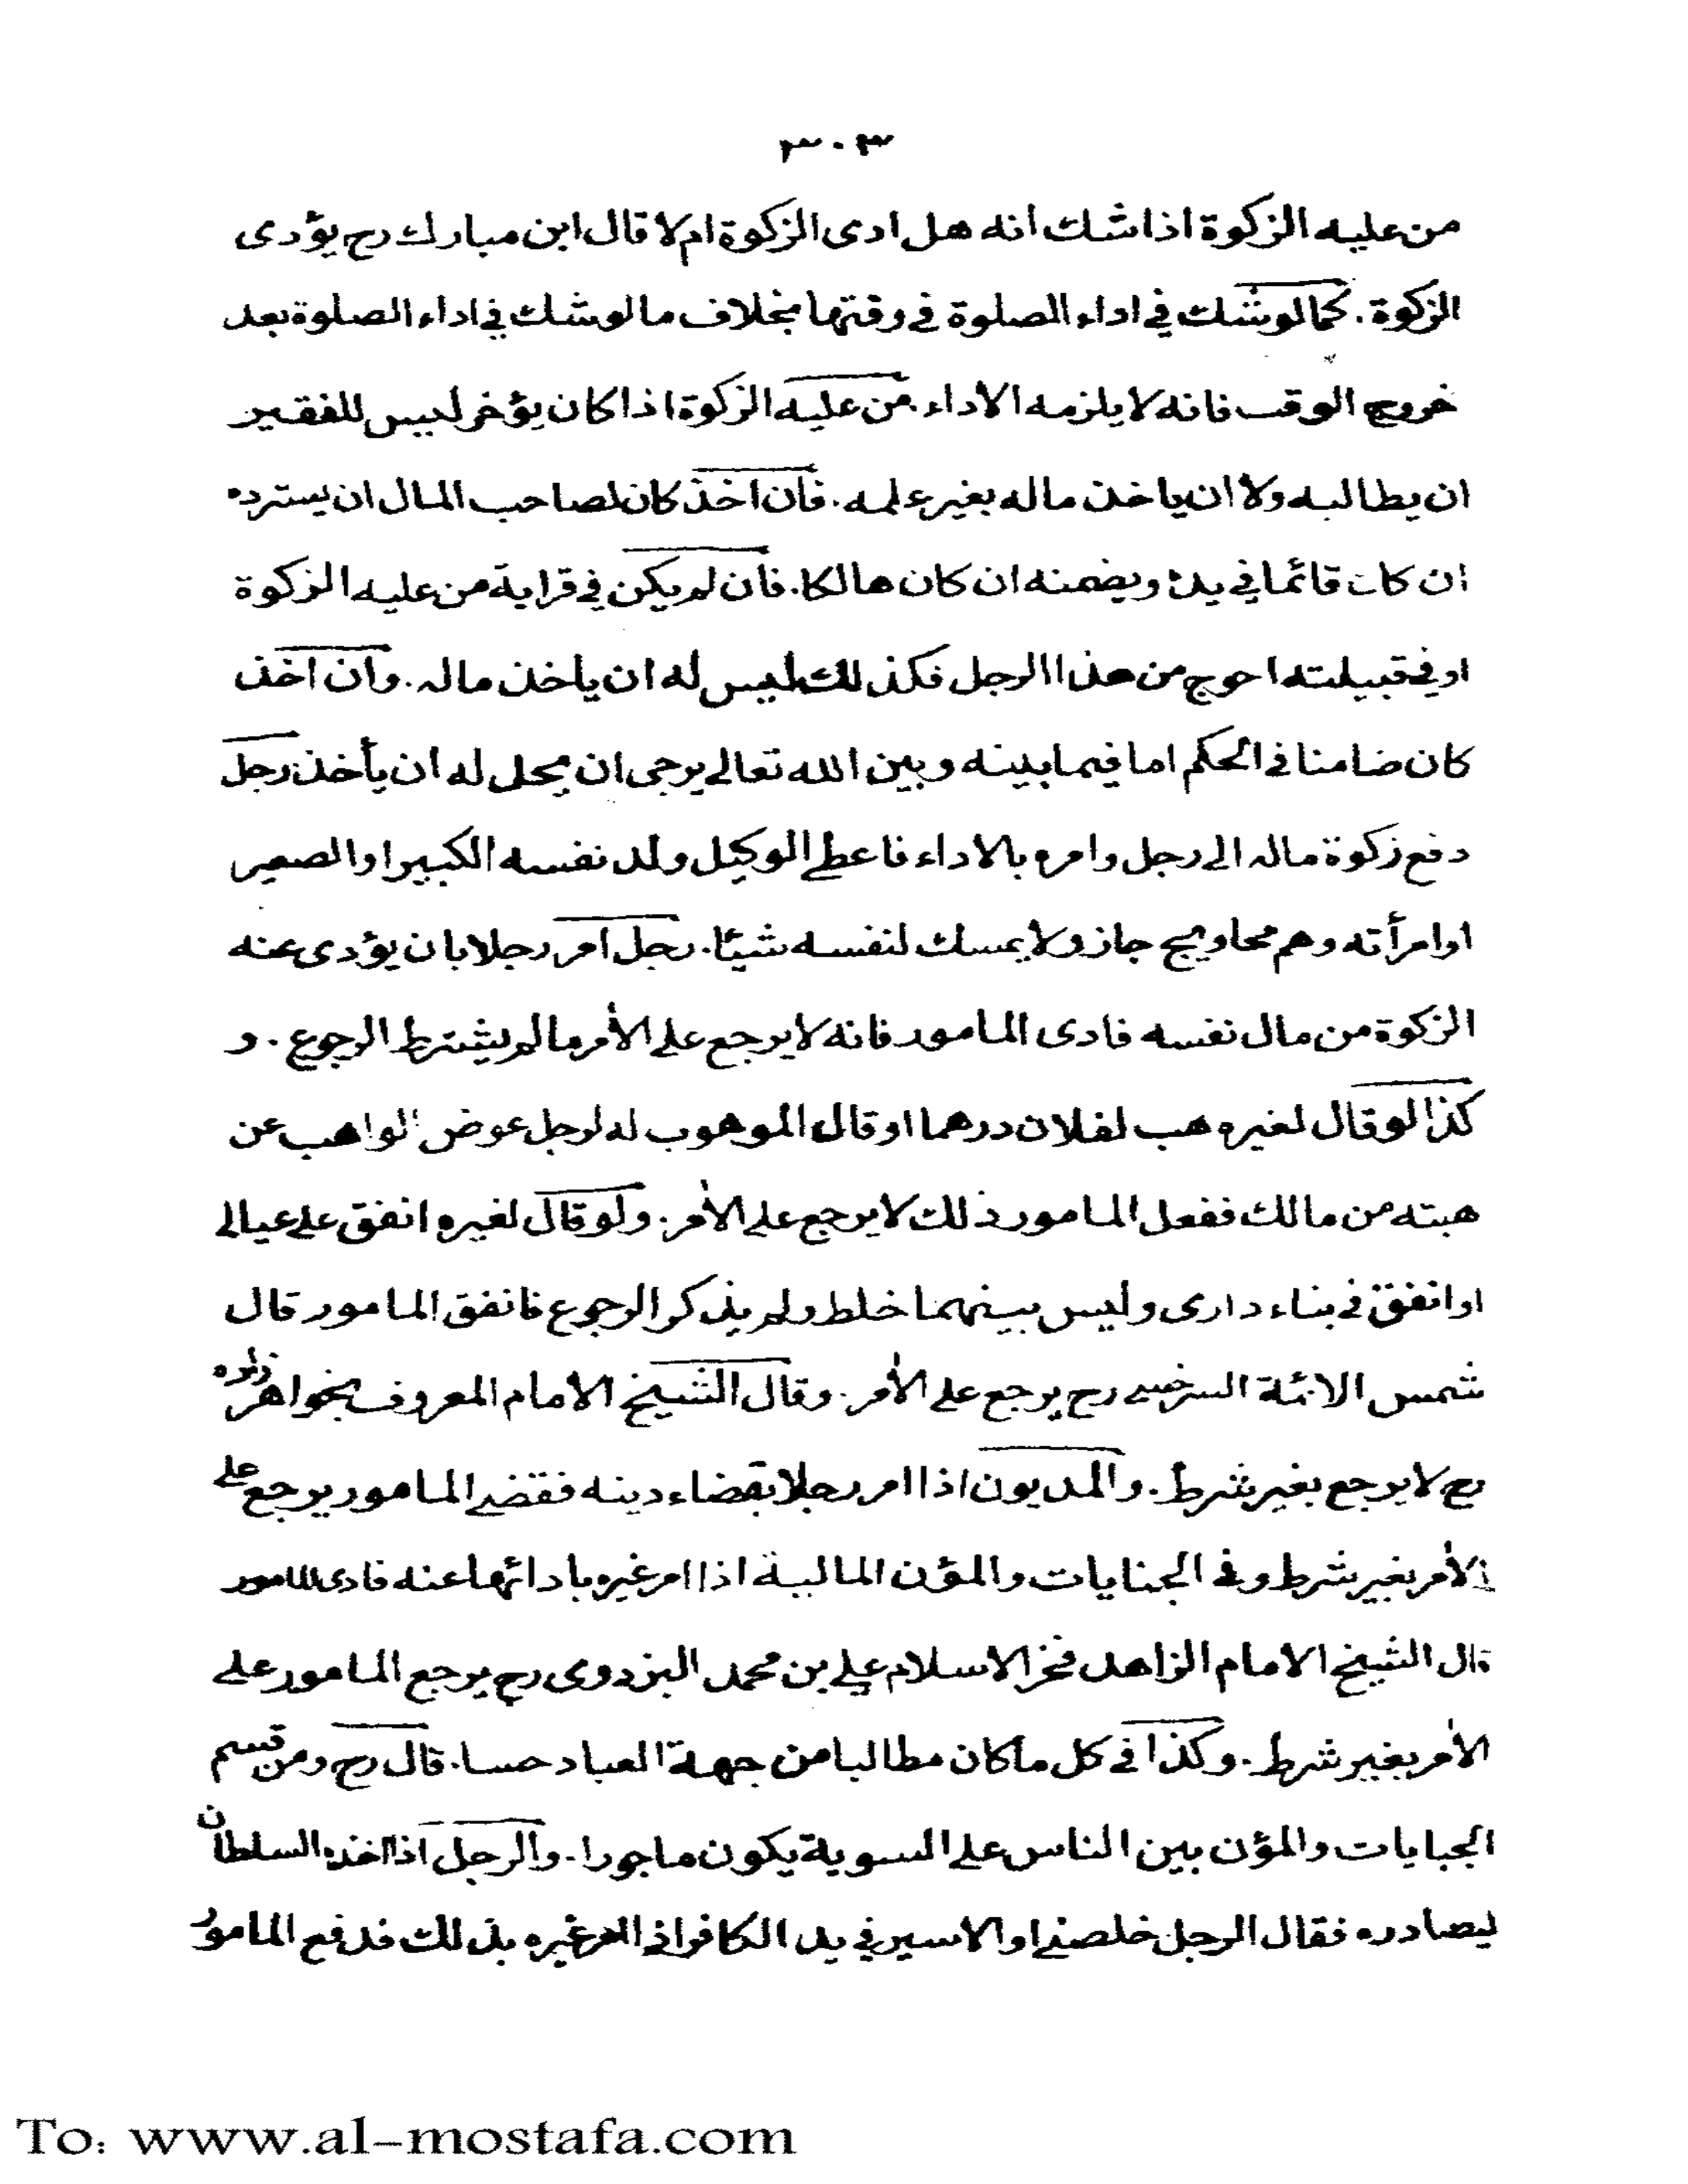 ٣٠٣
من عليه الزكوة اذا شك انه هل ادى الزكوة ام لا قال ابن مبارك رح يؤدى
الزكوة. كما لو شك في اداء الصلوة في وقتها بخلاف ما لو شك في اداء الصلوة بعد
خروج الوقت فانه لا يلزمه الاداء. من عليه الزكوة اذا كان يؤخر ليس للفقير
ان يطالبه ولا ان ياخذ ماله بغير علمه. فان اخذ كان لصاحب المال ان يسترده
ان كان قائما في يده ويضمنه ان كان هالكا. فان لم يكن في قرابة من عليه الزكوة
او في قبيلته احوج من هذا الرجل فكذلك ليس له ان ياخذ ماله. وان اخذ
كان ضامنا في الحكم اما فيما بينه وبين الله تعالى يرجى ان يحل له ان يأخذ. رجل
دفع زكوة ماله الى رجل وامره بالاداء فاعطى الوكيل ولد نفسه الكبير او الصغير
او امرأته وهم محاويج جاز ولا يمسك لنفسه شيئا. رجل امر رجلا بان يؤدى عنه
الزكوة من مال نفسه فادى المامور فانه لا يرجع على الأمر ما لم يشترط الرجوع. و
كذا لو قال لغيره هب لفلان درهما او قال الموهوب له لرجل عوض الواهب عن
هبته من مالك ففعل المامور ذلك لا يرجع على الأمر. ولو قال لغيره انفق على عيالى
او انفق في بناء دارى وليس بينهما خلط ولم يذكر الرجوع فانفق المامور قال
شمس الائمة السرخسى رح يرجع على الأمر. وقال الشيخ الامام المعروف بخواهر زاده
رح لا يرجع بغير شرط. والمديون اذا امر رجلا بقضاء دينه فقضى المامور يرجع على
الأمر بغير شرط وفي الجنايات والمؤن المالية اذا امر غيره بادائها عنه فادى المامور
قال الشيخ الامام الزاهد فخر الاسلام على بن محمد البزدوى رح يرجع المامور على
الأمر بغير شرط. وكذا في كل ما كان مطالبا من جهة العباد حسا. قال رح ومن قسم
الجبايات والمؤن بين الناس على السوية يكون ماجورا. والرجل اذا اخذه السلطان
ليصادره فقال الرجل خلصنى او الاسير في يد الكافر اذا امر غيره بذلك فدفع المامور
To: www.al-mostafa.com